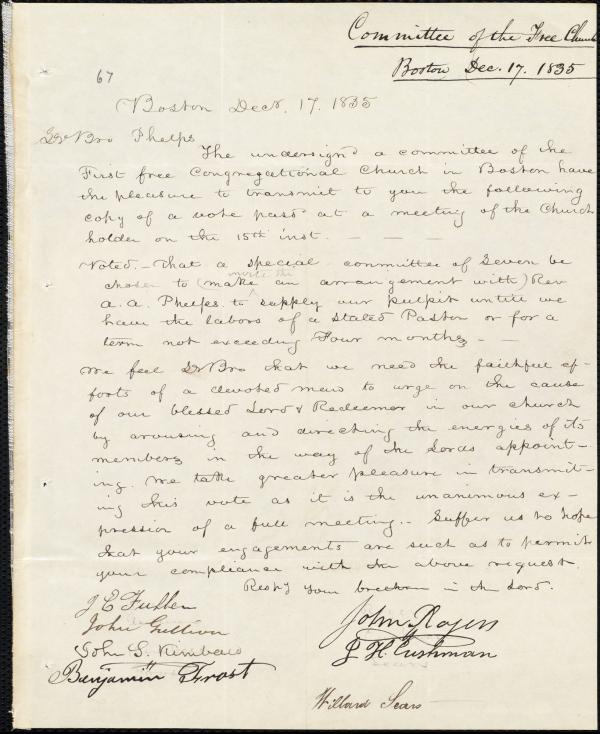 Committee of the Free Church
Boston Dec. 17. 1835
67
Boston Decr. 17. 1835
Dr Bro Phelps
The undersignd a committee of the
First free Congregational Church in Boston have
the pleasure to transmit to you the following
copy of a vote passd at a meeting of the Church
holden on the 15th inst. — — —
Voted. — That a special committee of Seven be
chosen to (make an arrangement with) Rev
invite the
A. A. Phelps. to supply our pulpit untill we
have the labors of a stated Pastor or for a
term not exceeding Four months, —
We feel Dr Bro that we need the faithful ef-
forts of a devoted man to urge on the cause
of our blessed Lord & Redeemer in our church
by arousing and directing the energies of its
members in the way of the Lords appoint-
ing. We take greater pleasure in transmit-
ing this vote as it is the unanimous ex-
pression of a full meeting. — Suffer us to hope
that your engagements are such as to permit
your compliance with the above request.
Respy your brethren in the Lord.
J E Fuller
John Gulliver
John S. Kimball
Benjamin Frost
John Rogers
J. H. Cushman
Willard Sears